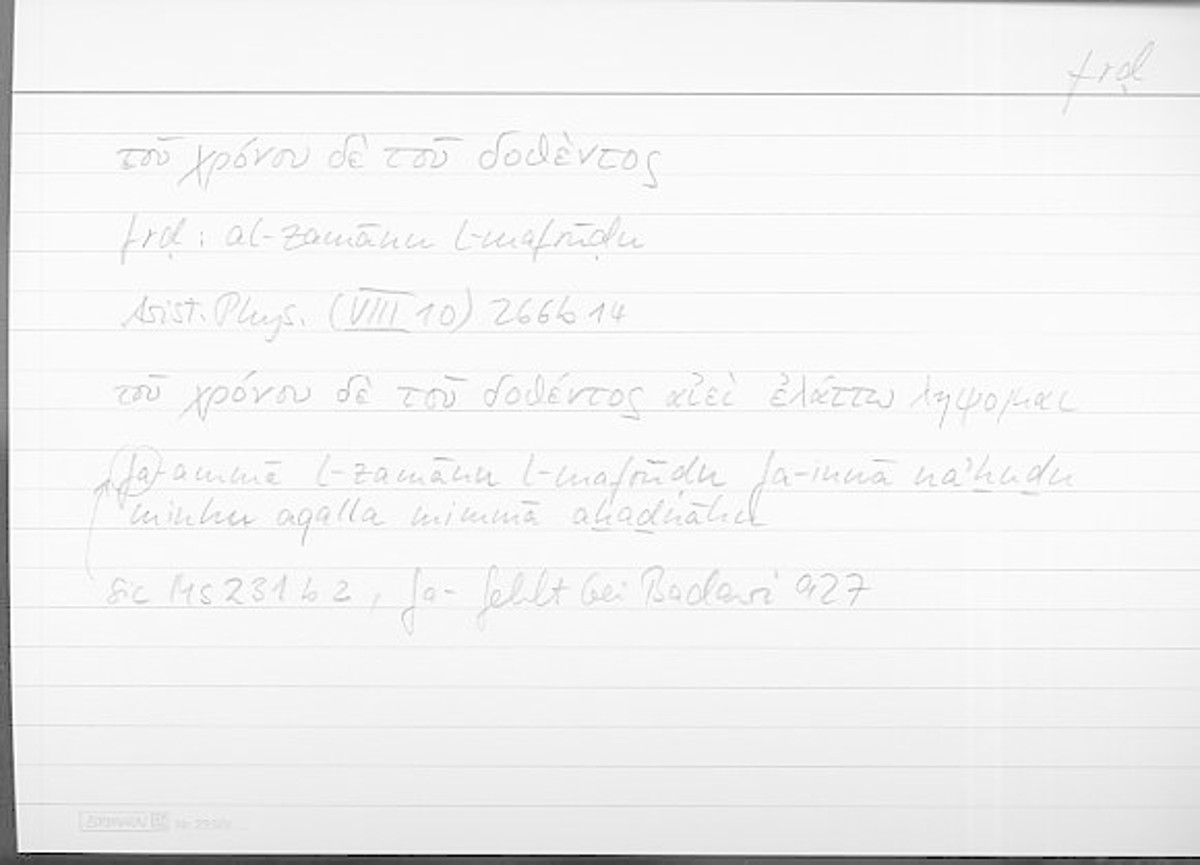 frḍ
τοῦ χρόνου δὲ τοῦ δοθὲντος
frḍ: al-zamānu l-mafrūḍu
Arist. Phys. (VIII 10) 266b14
τοῦ χρόνου δὲ τοῦ δοθέντος αἰεὶ ἐλάττω ληψομαι
fa-ammā l-zamānu l-mafrūḍu fa-innā naʾẖuḏu
minhu aqalla mimmā aẖaḏnāhu
sic Ms 231b2, fa- fehlt bei Badawi 927